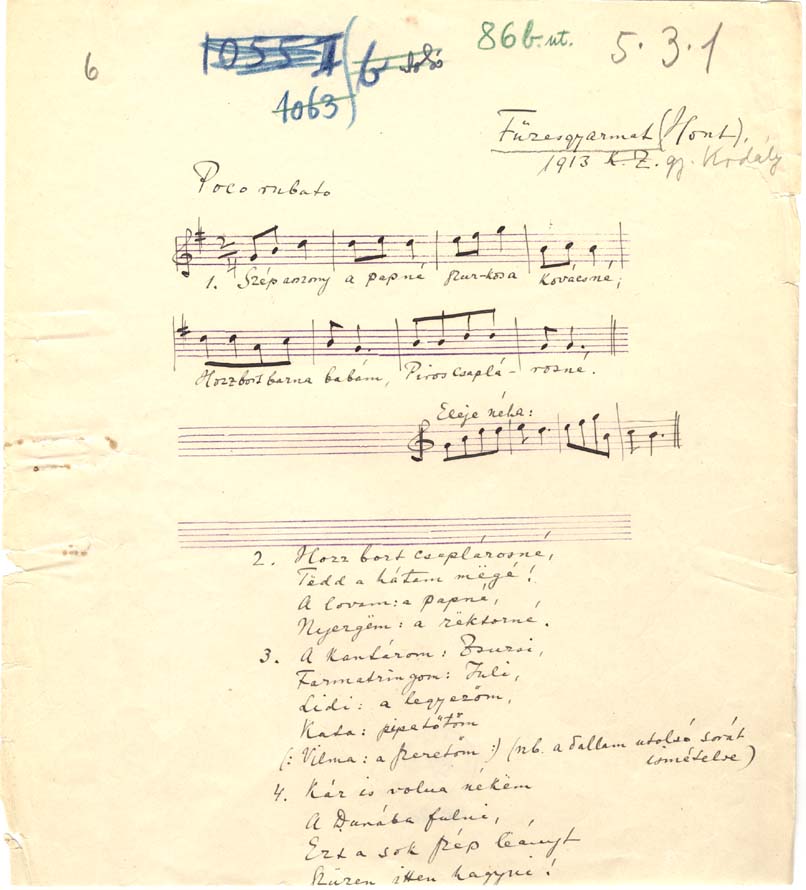 6
1055 II
1063
b
86 b. ut.
5.3.1
Füzesgyarmat (Hont),
1913 K. Z. gy. Kodály
Poco rubato
1. Szép asszony a papné Szur-kosa Kovácsné,
Hozz bort barna babám, Piros csaplá- rosné.
Eleje néha:
2. Hozz bort csaplárosné,
Tëdd a hátam mëgé!
A lovam: a papné,
Nyergëm: a rëktorné.
3. A kantárom: Zsuzsi,
Farmatringom: Juli,
Lidi: a legyezőm,
Kata: pipatőtőm
(: Vilma: a szeretőm :) (nb. a dallam utolsó sorát
ismételve)
4. Kár is volna nékëm
A Dunába fulni,
Ezt a sok szép leányt
Szüzen itten hagyni!